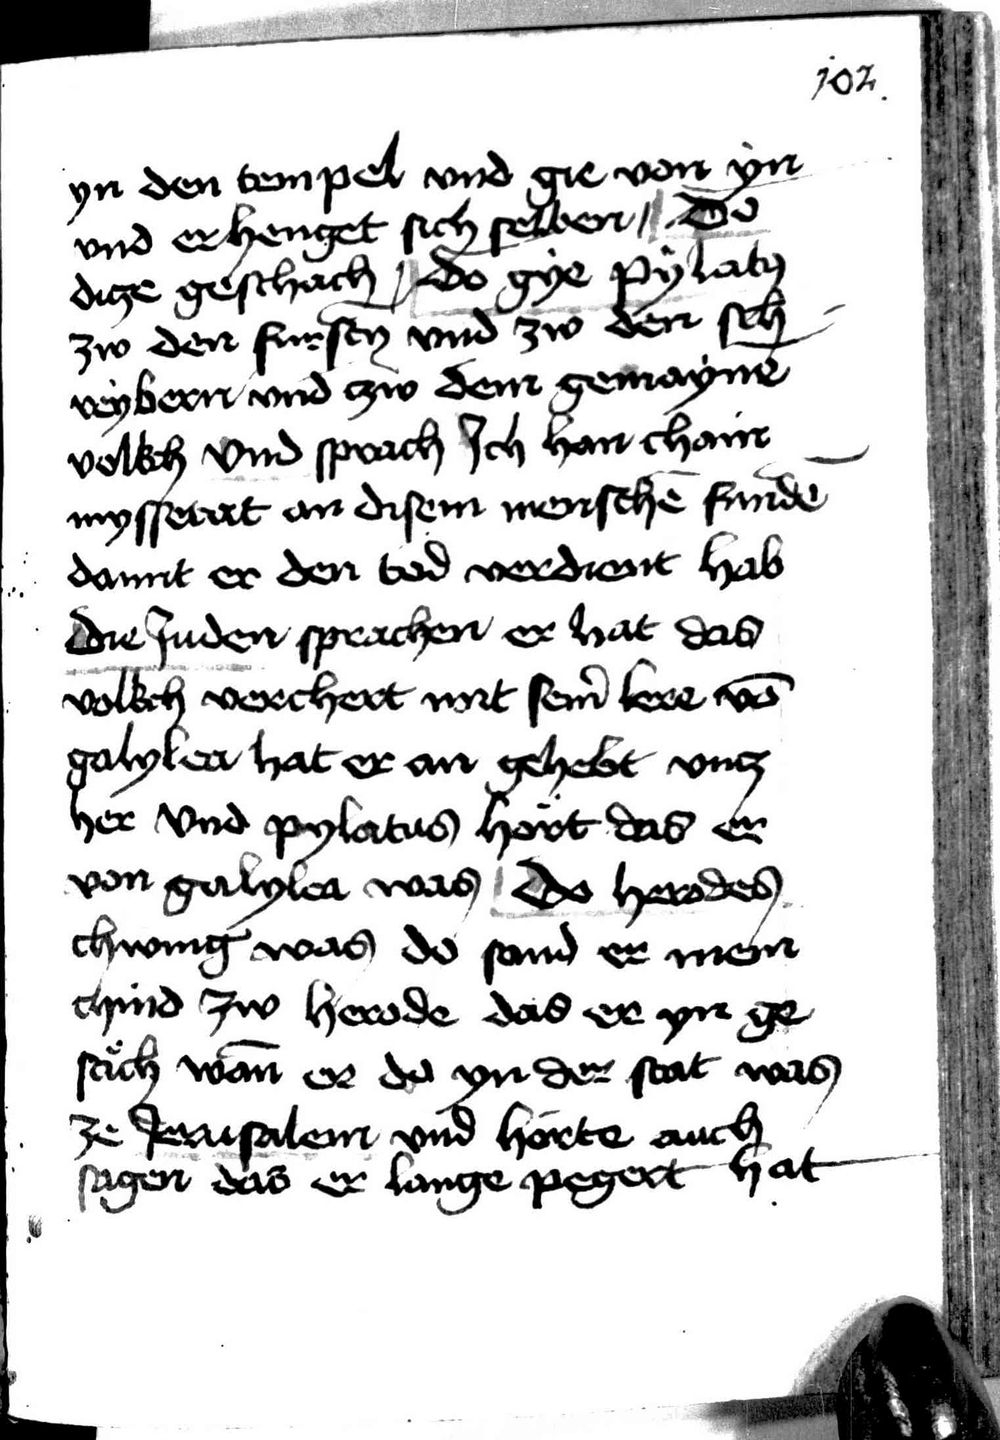 102.
yn den tempel vnd gie von ÿn
vnd erhenget sich selben // Do
dicze geschach / Do gÿe Pÿlatꝰ
zw den furstn vnd zw den sch
reẏbern vnd czw dem gemaÿnē
volkch Vnd sprach Ich han chain
myssetat an disem menschē fundē
damit er den tod verdient hab
Die Juden sprachen er hat das
volkch verchert mit sein̄ lere vō
galylea hat er an gehebt vncz
her Vnd pylatus hört das er
von galylea was / Do herodes
chwnig was do sand er mein
chind zw herode das er yn ge
säch wan̄ er da yn der stat was
ze Jerusalem vnd hörte auch
sagen das er lange pegert hat